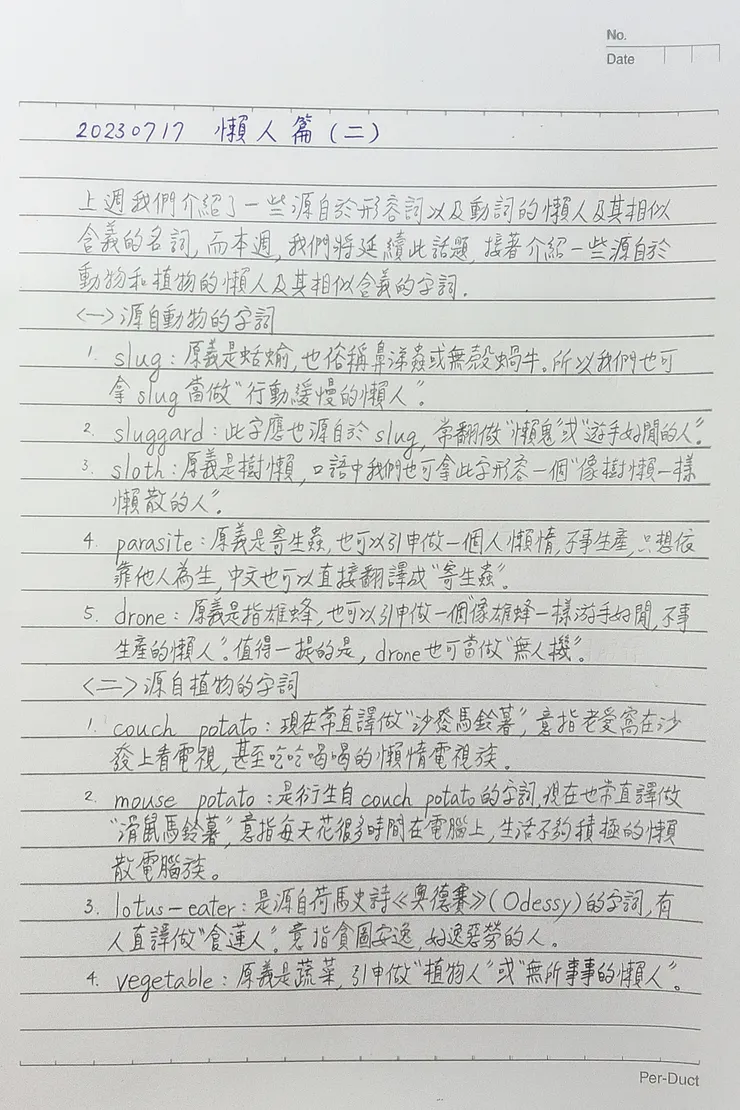 No.
Date
20230717 懶人篇(二)
上週我們介紹了一些源自於形容詞以及動詞的懶人及其相似
含義的名詞,而本週,我們將延續此話題,接著介紹一些源自於
動物和植物的懶人及其相似含義的字詞.
<一>源自動物的字詞
1. slug:原義是蛞蝓,也俗稱鼻涕蟲或無殼蝸牛。所以我們也可
拿slug當做“行動緩慢的懶人”。
2. sluggard:此字應也源自於slug,常翻做“懶鬼”或“遊手好閒的人”。
3. sloth:原義是樹懶,口語中我們也可拿此字形容一個“像樹懶一樣
懶散的人”。
4. parasite:原義是寄生蟲,也可以引申做一個人懶惰,不事生產,只想依
靠他人為生,中文也可以直接翻譯成“寄生蟲”。
5. drone:原義是指雄蜂,也可以引申做一個“像雄蜂一樣游手好閒,不事
生產的懶人”。值得一提的是,drone也可當做“無人機”。
<二>源自植物的字詞
1. couch potato:現在常直譯做“沙發馬鈴薯”,意指老愛窩在沙
發上看電視,甚至吃吃喝喝的懶惰電視族。
2. mouse potato:是衍生自couch potato的字詞,現在也常直譯做
“滑鼠馬鈴薯”,意指每天花很多時間在電腦上,生活不夠積極的懶
散電腦族。
3. lotus-eater:是源自荷馬史詩《奧德賽》(Odessy)的字詞,有
人直譯做“食蓮人”。意指貪圖安逸,好逸惡勞的人。
4. vegetable:原義是蔬菜,引申做“植物人”或“無所事事的懶人”。
Per-Duct